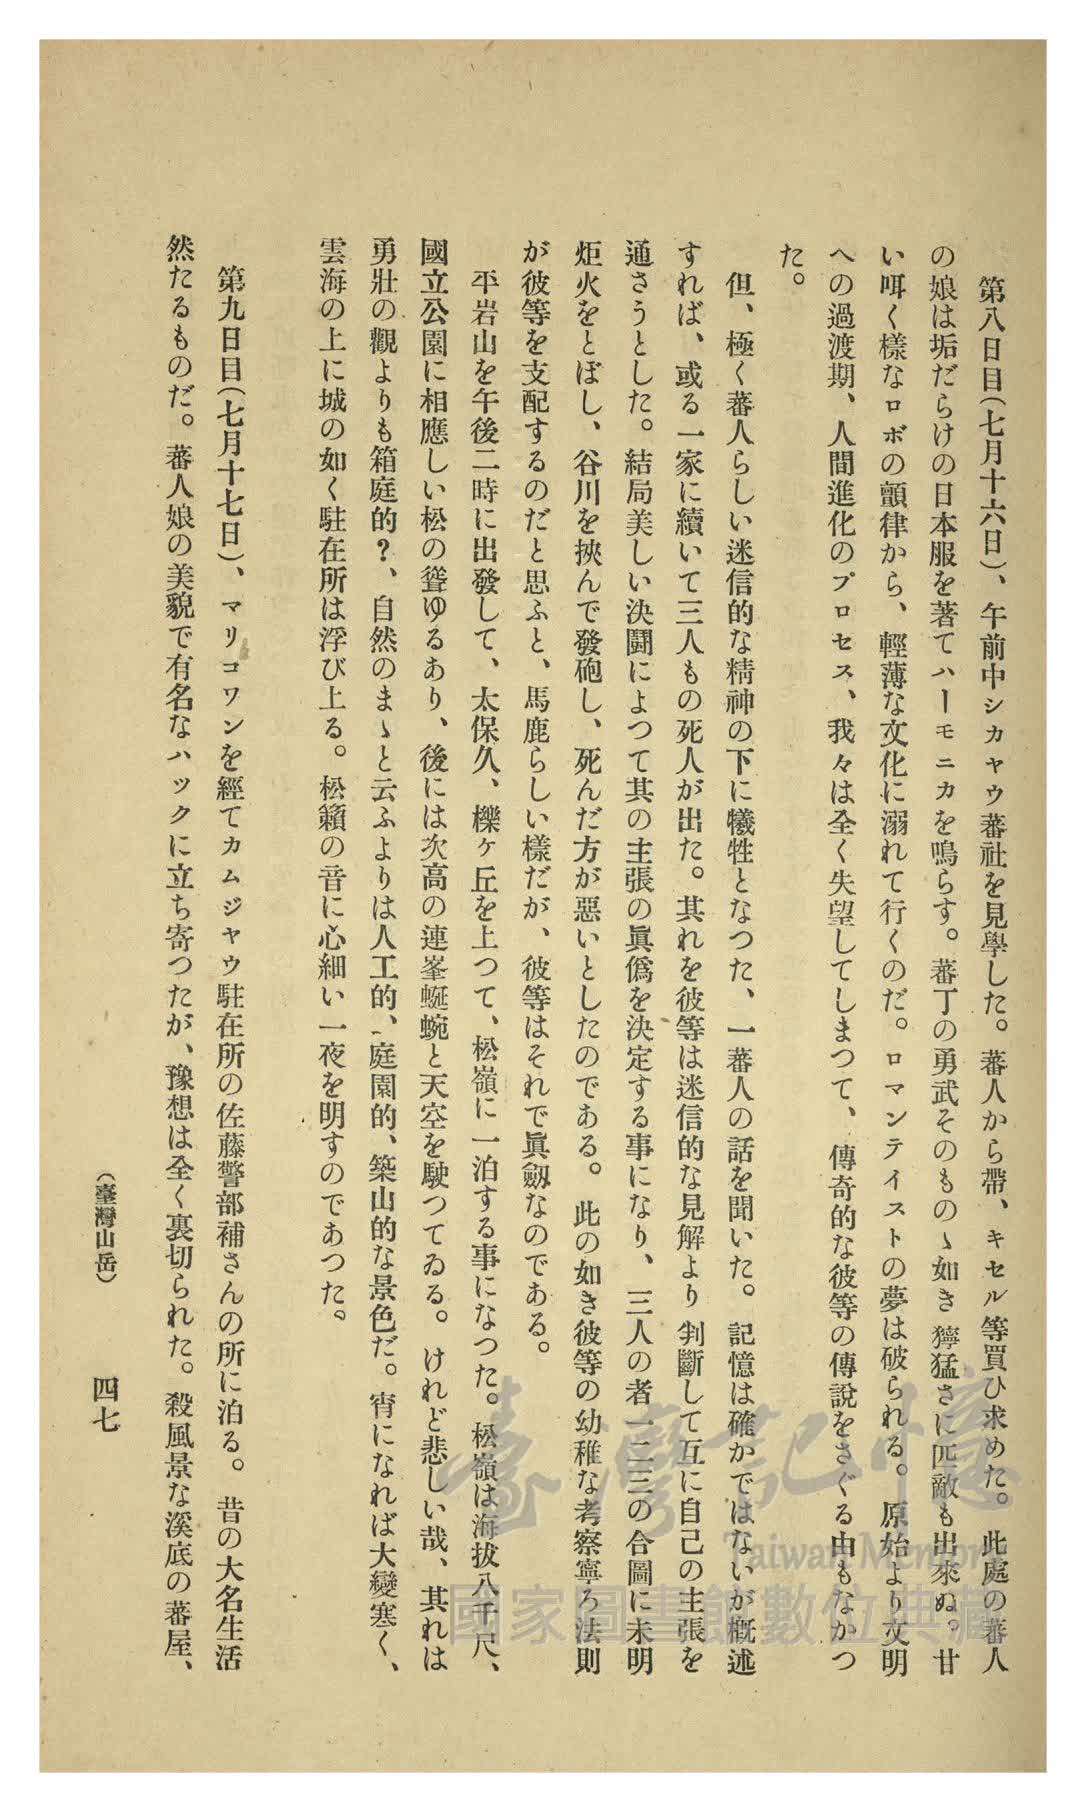 第八日目(七月十六日)、午前中シカヤウ蕃社を見學した。蕃人から帶、キセル等買ひ求めた。此處の蕃人
の娘は垢だらけの日本服を著てハーモニカを鳴らす。蕃丁の勇武そのものゝ如き獰猛さに匹敵も出來ぬ。甘
い呟く樣なロボの顫律から、輕薄な文化に溺れて行くのだ。ロマンテイストの夢は破られる。原始より文明
への過渡期、人間進化のプロセス、我々は全く失望してしまつて、傳奇的な彼等の傳說をさぐる由もなかつ
た。
但、極く蕃人らしい迷信的な精神の下に犧牲となつた、一蕃人の話を聞いた。記憶は確かではないが槪述
すれば、或る一家に續いて三人もの死人が出た。其れを彼等は迷信的な見解より判斷して互に自己の主張を
通さうとした。結局美しい決鬪によつて其の主張の眞僞を決定する事になり、三人の者一二三の合圖に未明
炬火をとぼし、谷川を挾んで發砲し、死んだ方が惡いとしたのである。此の如き彼等の幼稚な考察寧ろ法則
が彼等を支配するのだと思ふと、馬鹿らしい樣だが、彼等はそれで眞劔なのである。
平岩山を午後二時に出發して、太保久、櫟ヶ丘を上つて、松嶺に一泊する事になつた。松嶺は海拔八千尺、
國立公園に相應しい松の聳ゆるあり、後には次高の連峯蜒蜿と天空を駛つてゐる。けれど悲しい哉、其れは
勇壯の觀よりも箱庭的?、自然のまゝと云ふよりは人工的、庭園的、築山的な景色だ。宵になれば大變寒く、
雲海の上に城の如く駐在所は浮び上る。松籟の音に心細い一夜を明すのであつた。
第九日目(七月十七日)、マリコワンを經てカムジヤウ駐在所の佐藤警部補さんの所に泊る。昔の大名生活
然たるものだ。蕃人娘の美貌で有名なハックに立ち寄つたが、豫想は全く裏切られた。殺風景な溪底の蕃屋、
(臺灣山岳)
四七
臺灣記憶
Taiwan Memory
國家圖書館數位典藏